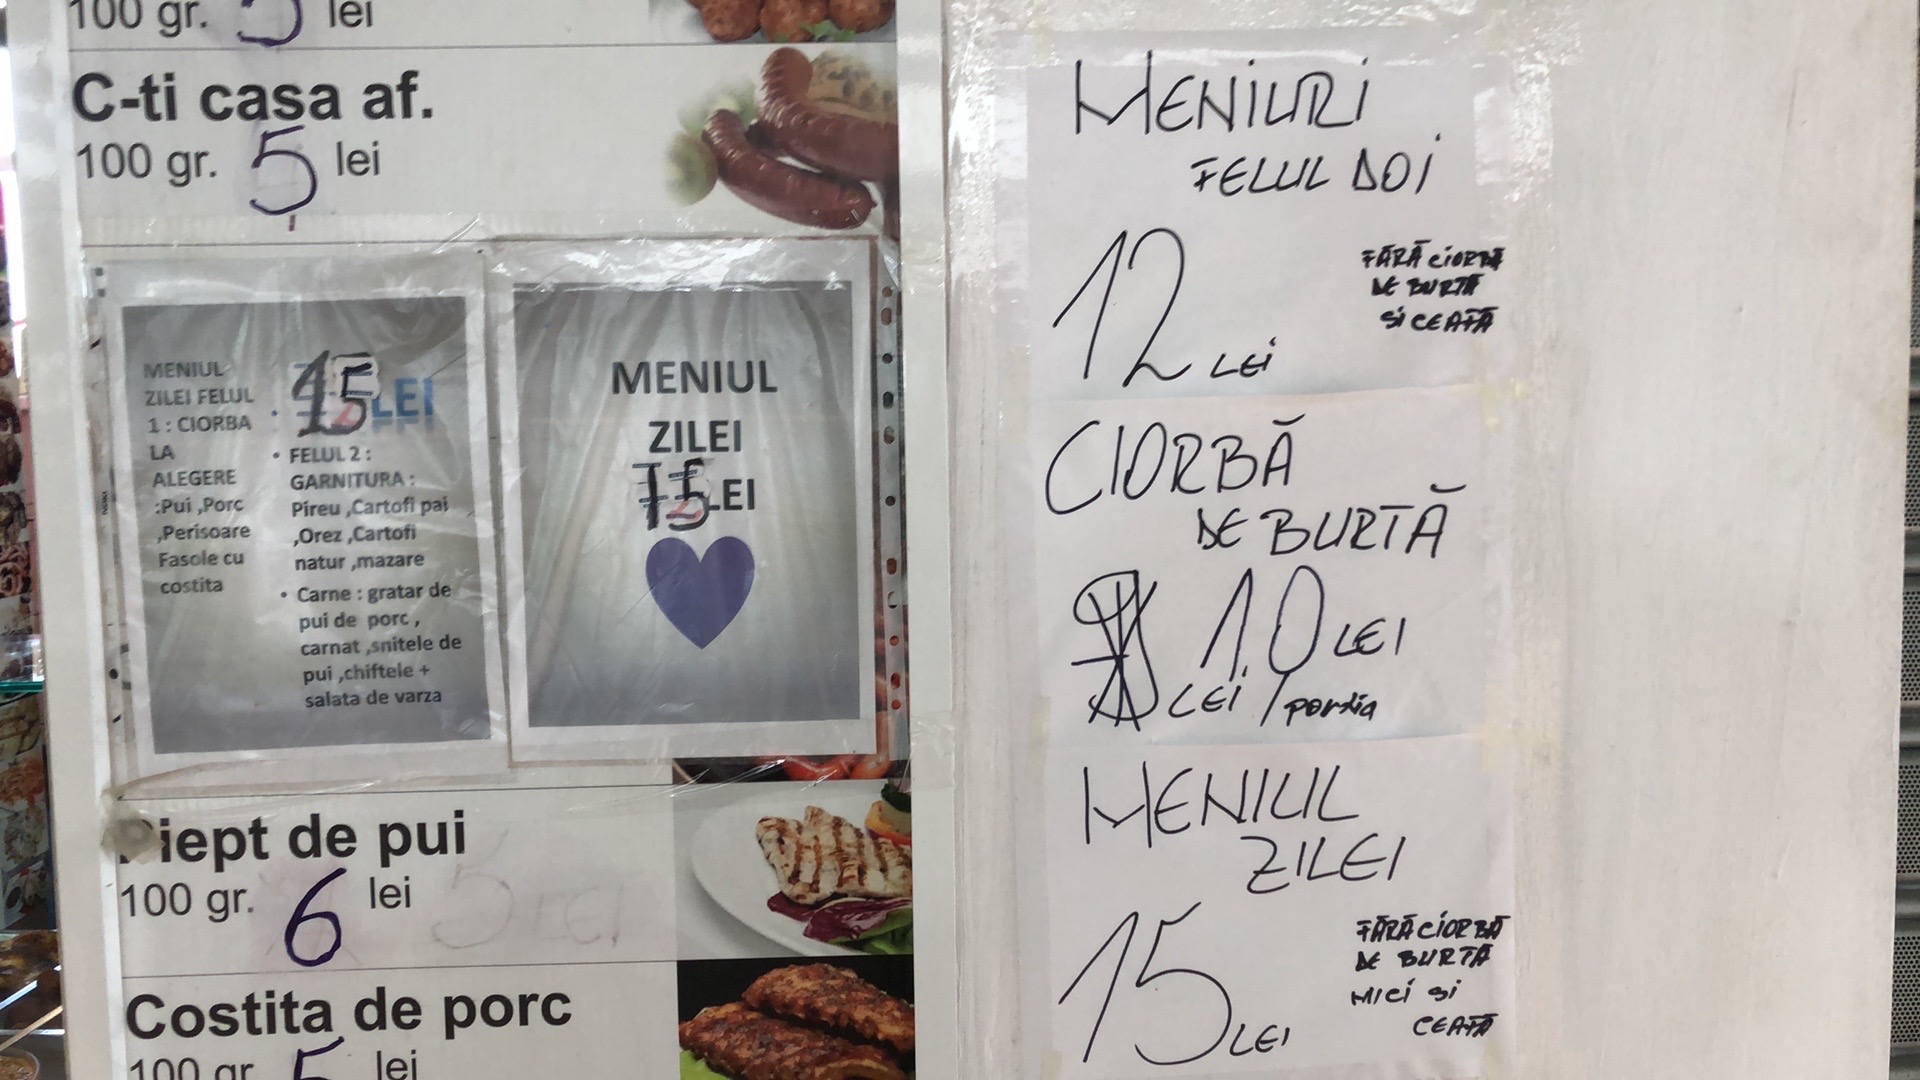 100 gr. 5 lei
C-ti casa af.
100 gr. 5 lei
MENIUL
ZILEI FELUL
1 : CIORBA
LA
ALEGERE
:Pui ,Porc
,Perisoare
Fasole cu
costita
• 15 LEI
• FELUL 2 :
GARNITURA :
Pireu ,Cartofi pai
,Orez ,Cartofi
natur ,mazare
• Carne : gratar de
pui de porc ,
carnat ,snitele de
pui ,chiftele +
salata de varza
MENIUL
ZILEI
15 LEI
Piept de pui
100 gr. 6 lei 5 LEI
Costita de porc
100 gr. 5 lei
MENIURI
FELUL DOI
12 LEI
FĂRĂ CIORBĂ
DE BURTĂ
SI CEAFĂ
CIORBĂ
DE BURTĂ
10 LEI
LEI / portia
MENIUL
ZILEI
15 LEI
FĂRĂ CIORBĂ
DE BURTA
MICI SI
CEAFĂ